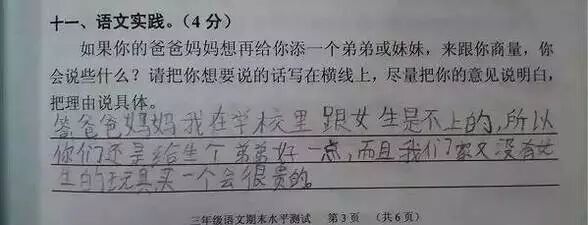 十一、语文实践。(4分)
如果你的爸爸妈妈想再给你添一个弟弟或妹妹，来跟你商量，你
会说些什么？请把你想要说的话写在横线上，尽量把你的意见说明白，
把理由说具体。
答爸爸妈妈我在学校里跟女生是不上的，所以
你们还是给生个弟弟好一点，而且我们家又没有女
生的玩具买一个会很贵的。
三年级语文期末水平测试 第3页 (共6页)